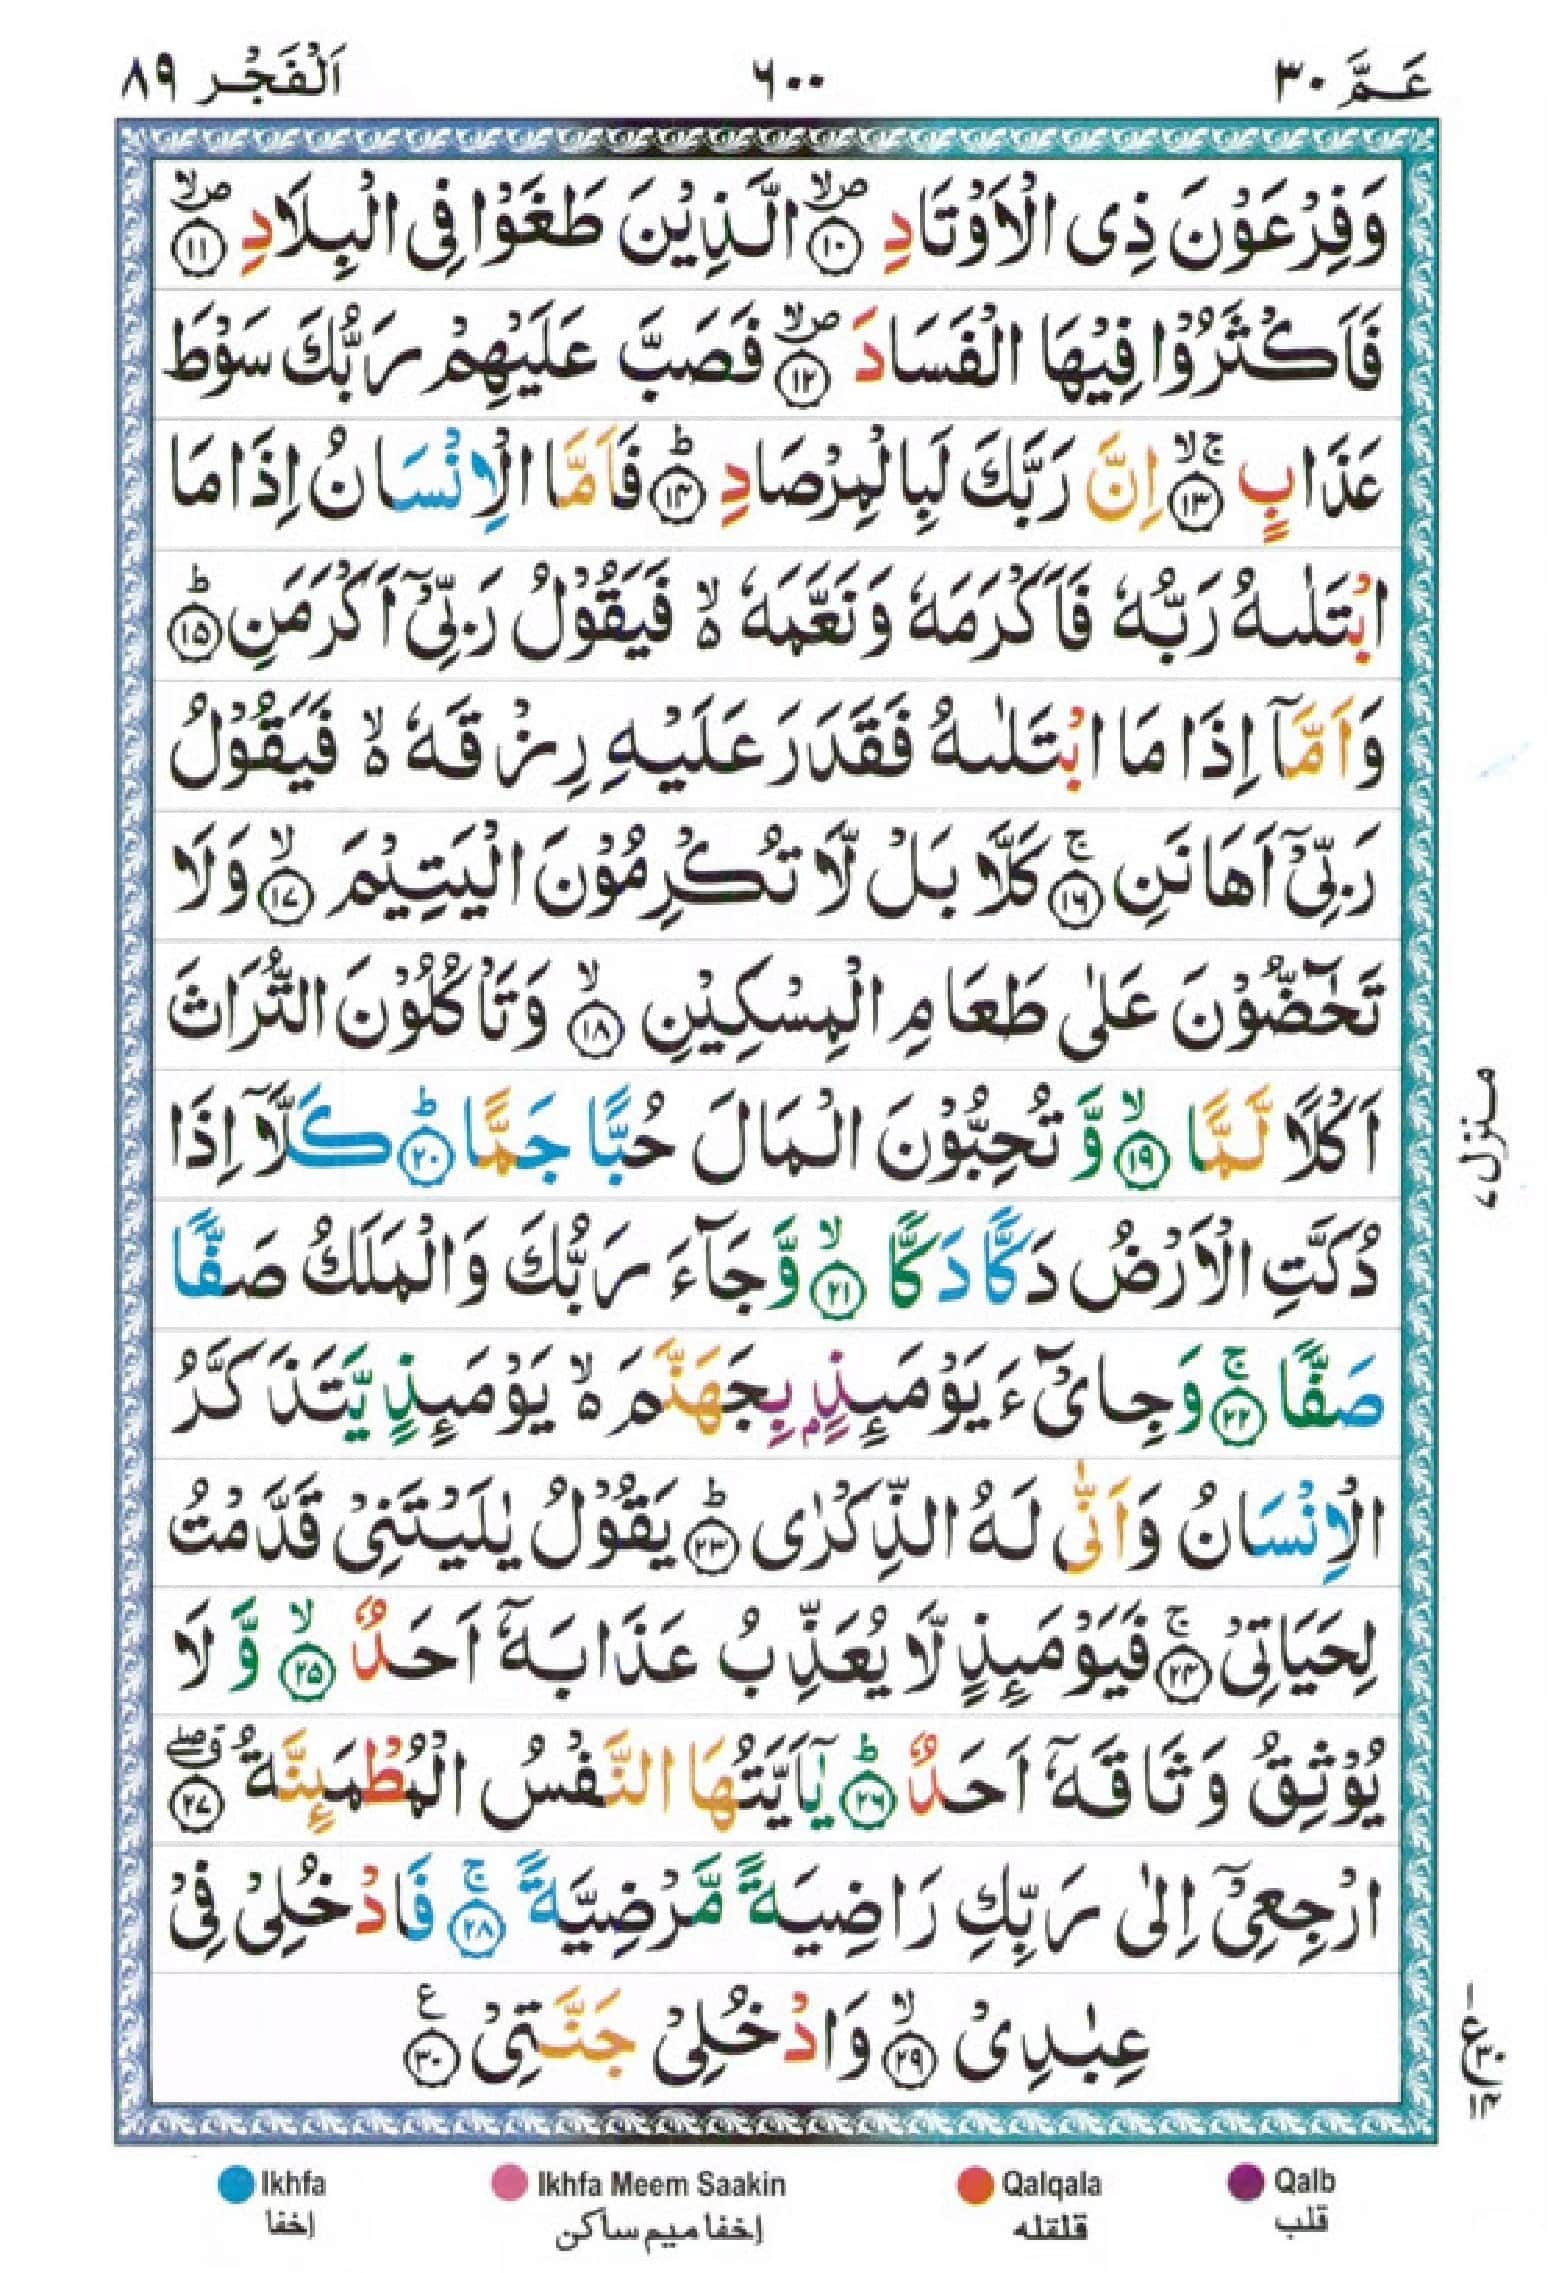 عَمَّ ٣٠
٦٠٠
اَلْفَجْر ٨٩
وَفِرْعَوْنَ ذِى الْاَوْتَادِ ۪ۙ ﴿١٠﴾ الَّذِيْنَ طَغَوْا فِى الْبِلَادِ ۪ۙ ﴿١١﴾
فَاَكْثَرُوْا فِيْهَا الْفَسَادَ ۪ۙ ﴿١٢﴾ فَصَبَّ عَلَيْهِمْ رَبُّكَ سَوْطَ
عَذَابٍ ۚۙ ﴿١٣﴾ اِنَّ رَبَّكَ لَبِالْمِرْصَادِ ؕ ﴿١٤﴾ فَاَمَّا الْاِنْسَانُ اِذَا مَا
ابْتَلٰىهُ رَبُّهٗ فَاَكْرَمَهٗ وَنَعَّمَهٗ ۙ۬ فَيَقُوْلُ رَبِّىْٓ اَكْرَمَنِ ؕ ﴿١٥﴾
وَاَمَّاۤ اِذَا مَا ابْتَلٰىهُ فَقَدَرَ عَلَيْهِ رِزْقَهٗ ۙ۬ فَيَقُوْلُ
رَبِّىْٓ اَهَانَنِ ۚ ﴿١٦﴾ كَلَّا بَلْ لَّا تُكْرِمُوْنَ الْيَتِيْمَ ۙ ﴿١٧﴾ وَلَا
تَحٰٓضُّوْنَ عَلٰى طَعَامِ الْمِسْكِيْنِ ۙ ﴿١٨﴾ وَتَاْكُلُوْنَ التُّرَاثَ
اَكْلًا لَّمًّا ۙ ﴿١٩﴾ وَّ تُحِبُّوْنَ الْمَالَ حُبًّا جَمًّا ؕ ﴿٢٠﴾ كَلَّاۤ اِذَا
دُكَّتِ الْاَرْضُ دَكًّا دَكًّا ۙ ﴿٢١﴾ وَّ جَآءَ رَبُّكَ وَالْمَلَكُ صَفًّا
صَفًّا ۚ ﴿٢٢﴾ وَجِاىْٓءَ يَوْمَىِٕذٍۭ بِجَهَنَّمَ ۙ۬ يَوْمَىِٕذٍ يَّتَذَكَّرُ
الْاِنْسَانُ وَاَنّٰى لَهُ الذِّكْرٰى ؕ ﴿٢٣﴾ يَقُوْلُ يٰلَيْتَنِىْ قَدَّمْتُ
لِحَيَاتِىْ ۚ ﴿٢٤﴾ فَيَوْمَىِٕذٍ لَّا يُعَذِّبُ عَذَابَهٗۤ اَحَدٌ ۙ ﴿٢٥﴾ وَّ لَا
يُوْثِقُ وَثَاقَهٗۤ اَحَدٌ ؕ ﴿٢٦﴾ يٰۤاَيَّتُهَا النَّفْسُ الْمُطْمَىِٕنَّةُ ۖق ﴿٢٧﴾
ارْجِعِىْٓ اِلٰى رَبِّكِ رَاضِيَةً مَّرْضِيَّةً ۚ ﴿٢٨﴾ فَادْخُلِىْ فِىْ
عِبٰدِىْ ۙ ﴿٢٩﴾ وَادْخُلِىْ جَنَّتِىْ ع ﴿٣٠﴾
منزل ٧
Ikhfa
Ikhfa Meem Saakin
Qalqala
Qalb
إخفا
إخفا ميم ساكن
قلقله
قلب